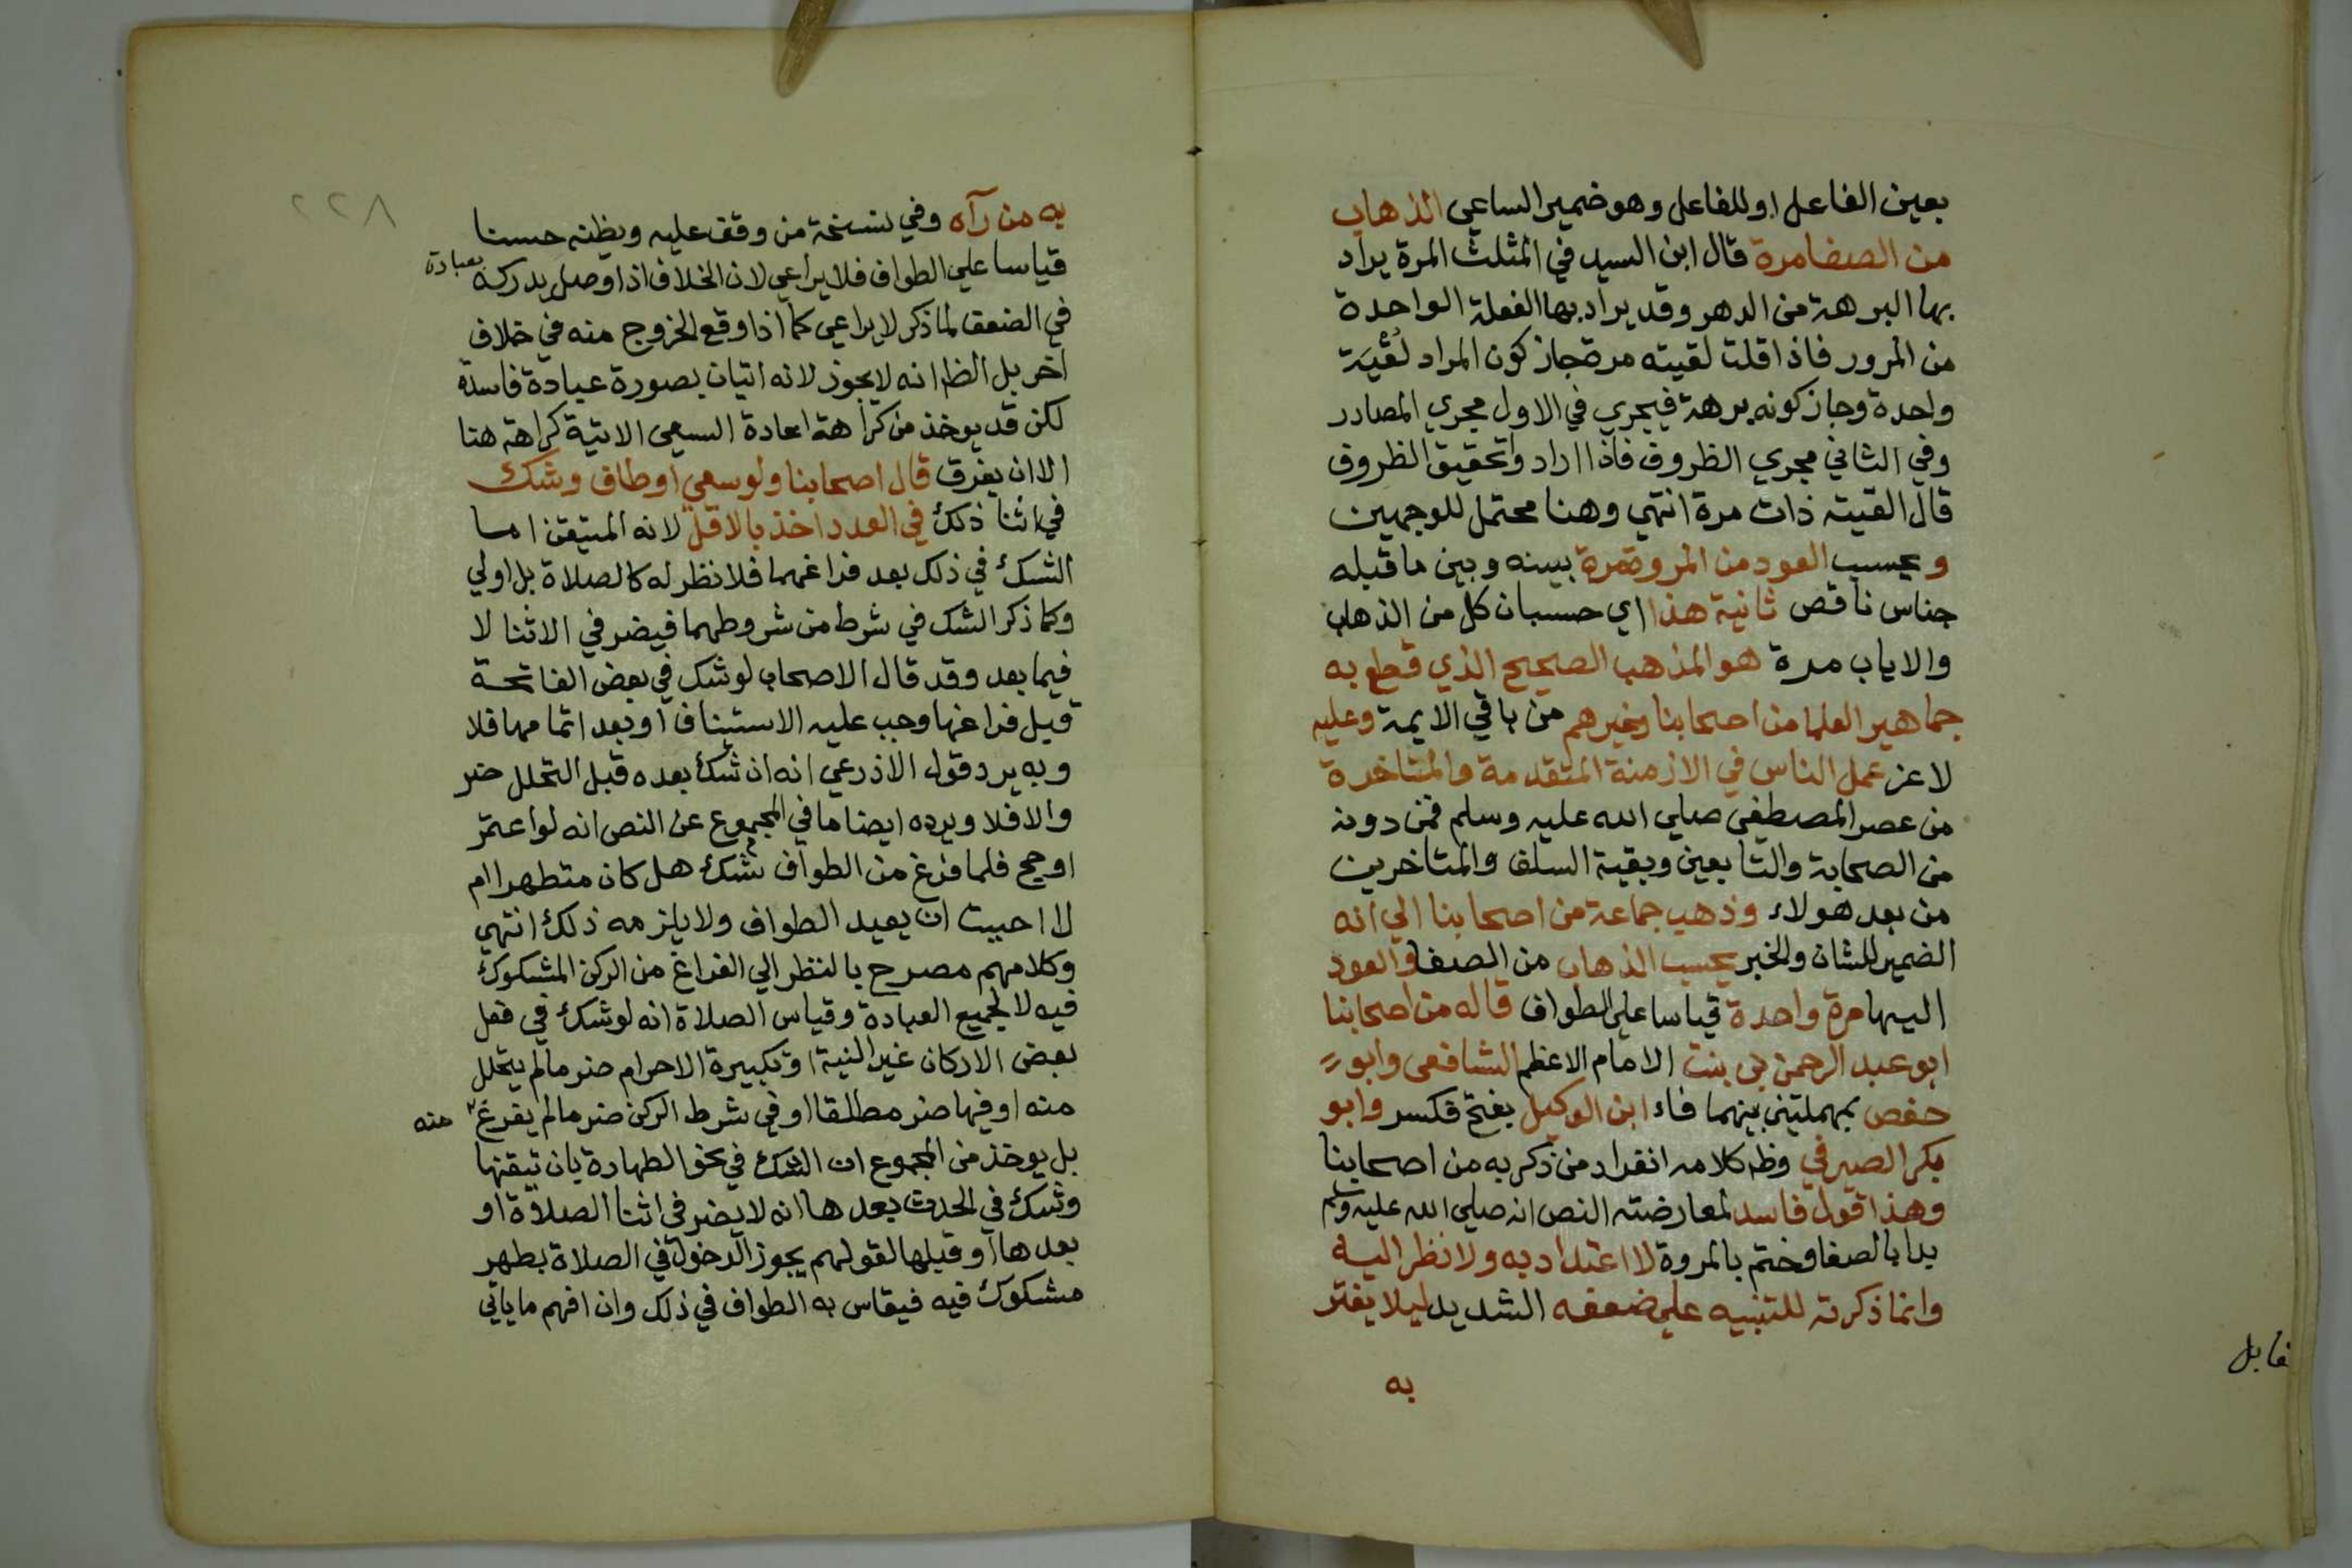 بعين الفاعل او للفاعل وهو ضمير الساعي الذهاب
من الصفا مرة قال ابن السيد في المثلث المرة يراد
بها البرهة من الدهر وقد يراد بها الفعلة الواحدة
من المرور فاذا قلت لقيته مرة جاز كون المراد لُقْيَة
واحدة وجاز كونه برهة فيجري في الاول مجري المصادر
وفي الثاني مجري الظروف فاذا ارادوا تحقيق الظروف
قال القيته ذات مرة انتهي وهنا محتمل للوجهين
ويحسب العود من المروة مرة بينه وبين ما قبله
جناس ناقص ثانية هذا اي حسبان كل من الذهاب
والاياب مرة هو المذهب الصحيح الذي قطع به
جماهير العلما من اصحابنا وغيرهم من باقي الايمة وعليه
لا عز عمل الناس في الازمنة المتقدمة والمتاخرة
من عصر المصطفي صلي الله عليه وسلم فمن دونه
من الصحابة والتابعين وبقية السلف والمتاخرين
من بعد هولاء وذهب جماعة من اصحابنا الي انه
الضمير للشان والخبر يحسب الذهاب من الصفا والعود
اليها مرة واحدة قياسا علي الطواف قاله من اصحابنا
ابو عبد الرحمن بن بنت الامام الاعظم الشافعي وابو
حفص بمهملتين بينهما فاء ابن الوكيل بفتح فكسر وابو
بكر الصيرفي وظ كلامه انفراد من ذكر به من اصحابنا
وهذا قول فاسد لمعارضته النص انه صلي الله عليه وسلم
بدا بالصفا وختم بالمروة لا اعتداد به ولا نظر اليه
وانما ذكرته للتنبيه علي ضعفه الشديد ليلا يغتر
به
قابل
٢٢٨
به من رآه وفي نسخة من وقف عليه ويظنه حسنا
قياسا علي الطواف فلا يراعي لان الخلاف اذا وصل مدركه
في الضعف لما ذكر لا يراعي كما اذا وقع الخروج منه في خلاف
اخر بل الظ انه لا يجوز لانه اتيان بصورة عبادة فاسدة
لكن قد يوخذ من كراهة اعادة السعي الاتية كراهة هنا
الا ان يفرق قال اصحابنا ولو سعي او طاف وشك
في اثنا ذلك في العدد اخذ بالاقل لانه المتيقن اما
الشك في ذلك بعد فراغهما فلا نظر له كالصلاة بل اولي
وكما ذكر الشك في شرط من شروطهما فيضر في الاثنا لا
فيما بعد وقد قال الاصحاب لو شك في بعض الفاتحة
قبل فراغها وجب عليه الاستيناف او بعد اتمامها فلا
وبه يرد قول الاذرعي انه ان شك بعده قبل التحلل ضر
والا فلا ويرده ايضا ما في المجموع عن النص انه لو اعتمر
او حج فلما فرغ من الطواف شك هل كان متطهرا ام
لا احببت ان يعيد الطواف ولا يلزمه ذلك انتهي
وكلامهم مصرح بالنظر الي الفراغ من الركن المشكوك
فيه لا لجميع العبادة وقياس الصلاة انه لو شك في فعل
بعض الاركان غير النية او تكبيرة الاحرام ضر ما لم يتحلل
منه او فيها ضر مطلقا او في شرط الركن ضر ما لم يفرغ منه
بل يوخذ من المجموع ان الشك في نحو الطهارة بان تيقنها
وشك في الحدث بعدها انه لا يضر في اثنا الصلاة او
بعدها او قبلها لقولهم يجوز الدخول في الصلاة بطهر
مشكوك فيه فيقاس به الطواف في ذلك وان افهم ما ياتي